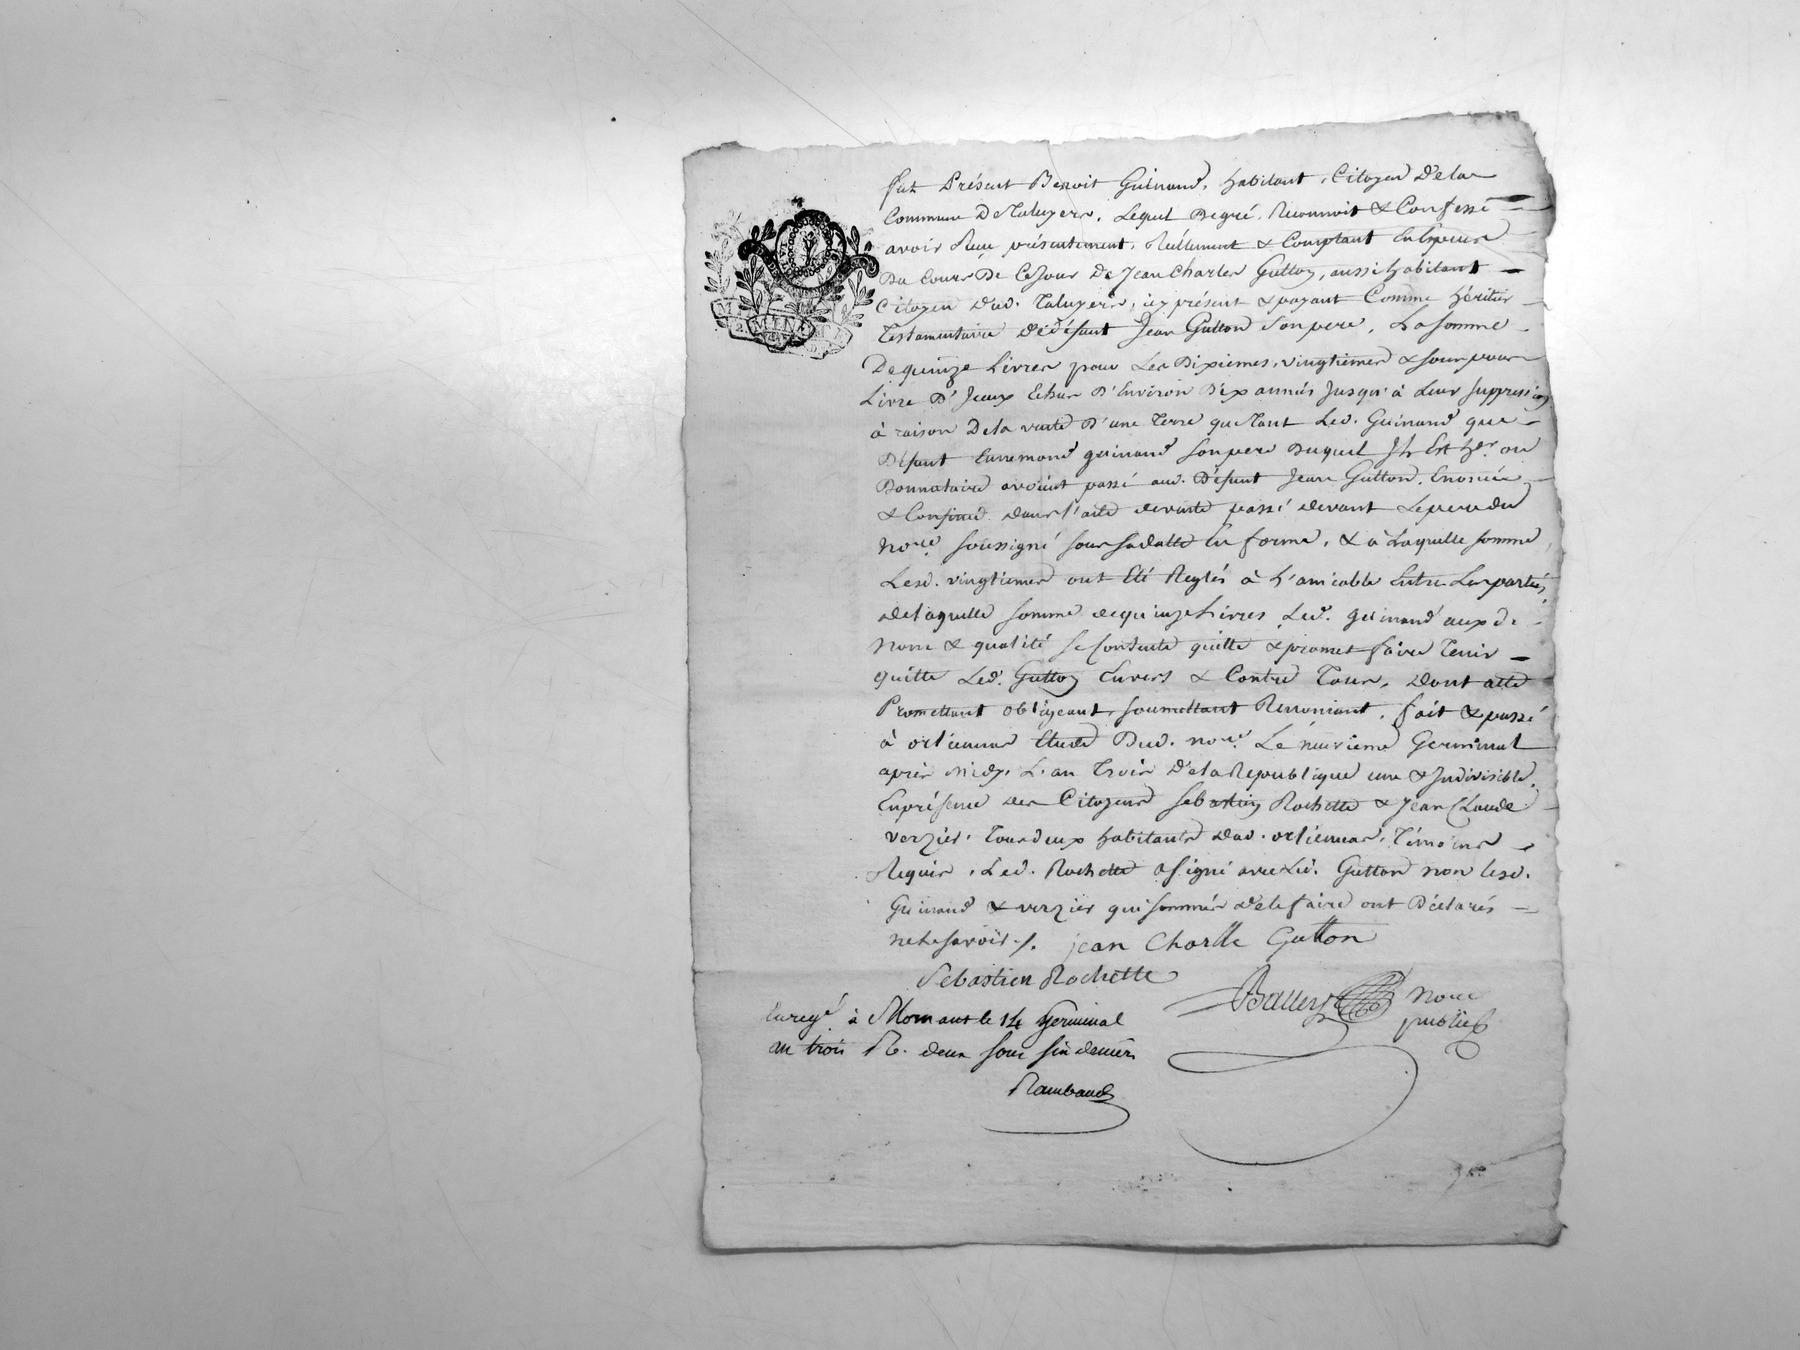 fut Présent Benoit Guinand, habitant, Citoyen Dela
Commune De Taluyers, Lequel Degré, Reconnoit & Confesse
avoir Reçu présentement, Réellement & Comptant En Especes
Du Cours De Ce Jour De Jean Charles Gutton, aussi habitant
Citoyen dud. Taluyers, icy présent & payant Comme héritier
Testamentaire de défunt Jean Gutton Son pere, La Somme
De quinze Livres pour Les Dixiemes, vingtiemes & sous pour
Livre D' Iceux Echus D'Environ Dix années Jusqu'à Leur Suppression
à raison Dela vente D'une Terre que Tant Led. Guinand que
Défunt Ennemond guinand Son pere Duquel Il Est her. ou
Donnataire avoient passé aud. Défunt Jean Gutton, Enoncée
& Confinée dans l'acte de vente passé devant Le pere du
nore. soussigné sous sa datte En forme, & à Laquelle somme
Lesd. vingtiemes ont Eté Reglés à L'amiable Entre Les parties
de laquelle somme de quinze Livres Led. guinand aux d.
nom & qualité se Contente quitte & promet faire Tenir
quitte Led. Gutton Envers & Contre Tous, Dont acte
Promettant obligeant, soumettant Renonciant, fait & passé
à orlienas Etude Dud. nore. Le neuvieme Germinal
après midy, L'an Trois De la Republique une & Indivisible,
En présence des Citoyens Sebastien Rochette & Jean Claude
verzier, Tous deux habitants dud. orlienas, Témoins
Requis, Led. Rochette a signé avec Led. Gutton non lesd.
Guinand & verzier qui sommés de le faire ont Déclarés
ne Le savoir./. jean Charlle Gutton
Sebastien Rochette
Balley nore
public
Enregé. à Mornant le 14 Germinal
an trois R. deux sous six deniers
Rambaud